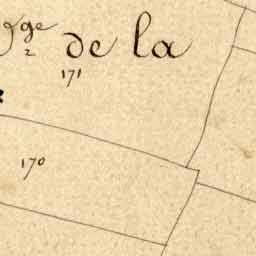 ge de la
2
171
170